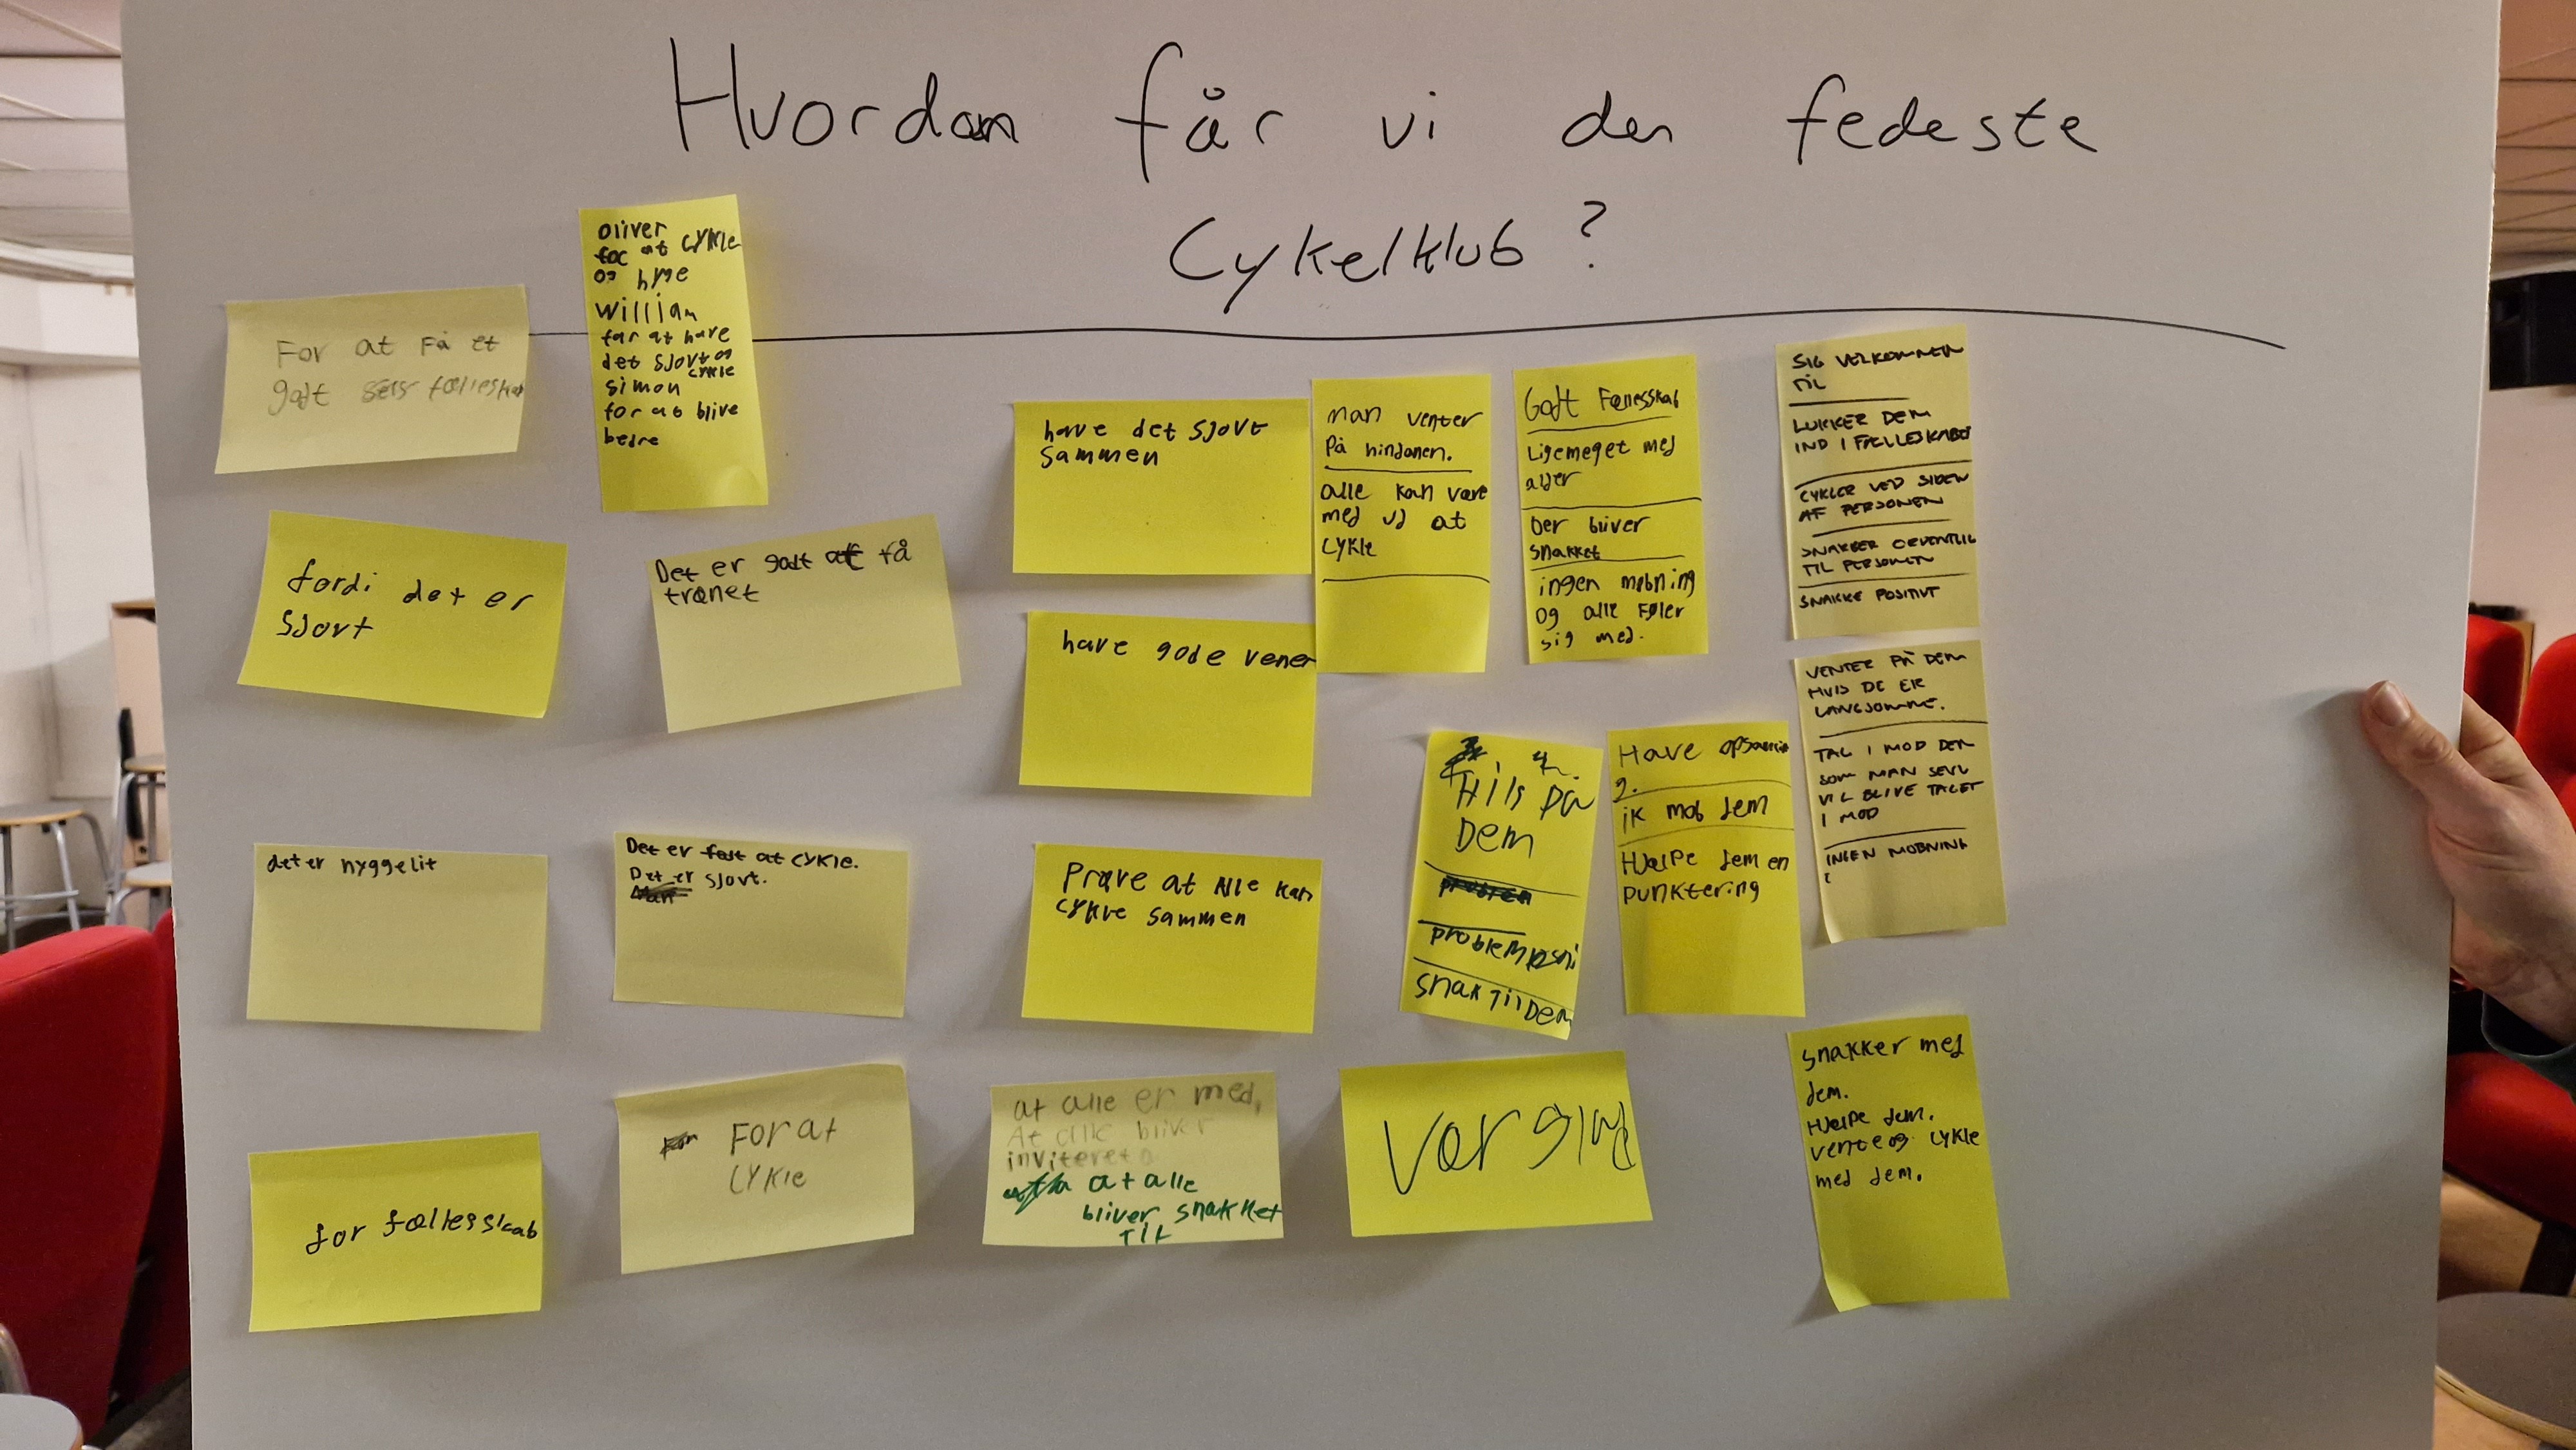 Hvordan får vi den fedeste
Cykelklub?
For at Få et
godt fælleskab
oliver
for at cykle
og hyge
William
for at have
det sjovt og
cykle
simon
for at blive
bedre
fordi det er
sjovt
Det er godt at få
trænet
det er hyggelit
Det er fedt at cykle.
Det er sjovt.
for fællesskab
For at
cykle
have det sjovt
sammen
have gode vener
Prøve at Alle kan
cykle sammen
at alle er med,
At alle bliver
inviteret
at alle
bliver snakket
Til
man venter
På hindanen.
alle kan være
med vd at
cykle
Godt Fællesskab
Ligemeget med
alder
Der bliver
snakket
ingen mobning
og alle Føler
sig med.
SIG VELKOMMEN
TIL
LUKKER DEM
IND I FÆLLESKABET
CYKLER VED SIDEN
AF PERSONEN
SNAKKER ORDENTLIG
TIL PERSONEN
SNAKKE POSITIVT
VENTER PÅ DEM
HVIS DE ER
LANGSOMME.
TAL I MOD DEM
SOM MAN SELV
VIL BLIVE TALET
I MOD
INGEN MOBNING
Hils på
Dem
snak Til Dem
Have
ik mob dem
Hjælpe dem en
punktering
Vær glad
snakker med
dem.
Hjælpe dem.
vente og cykle
med dem.